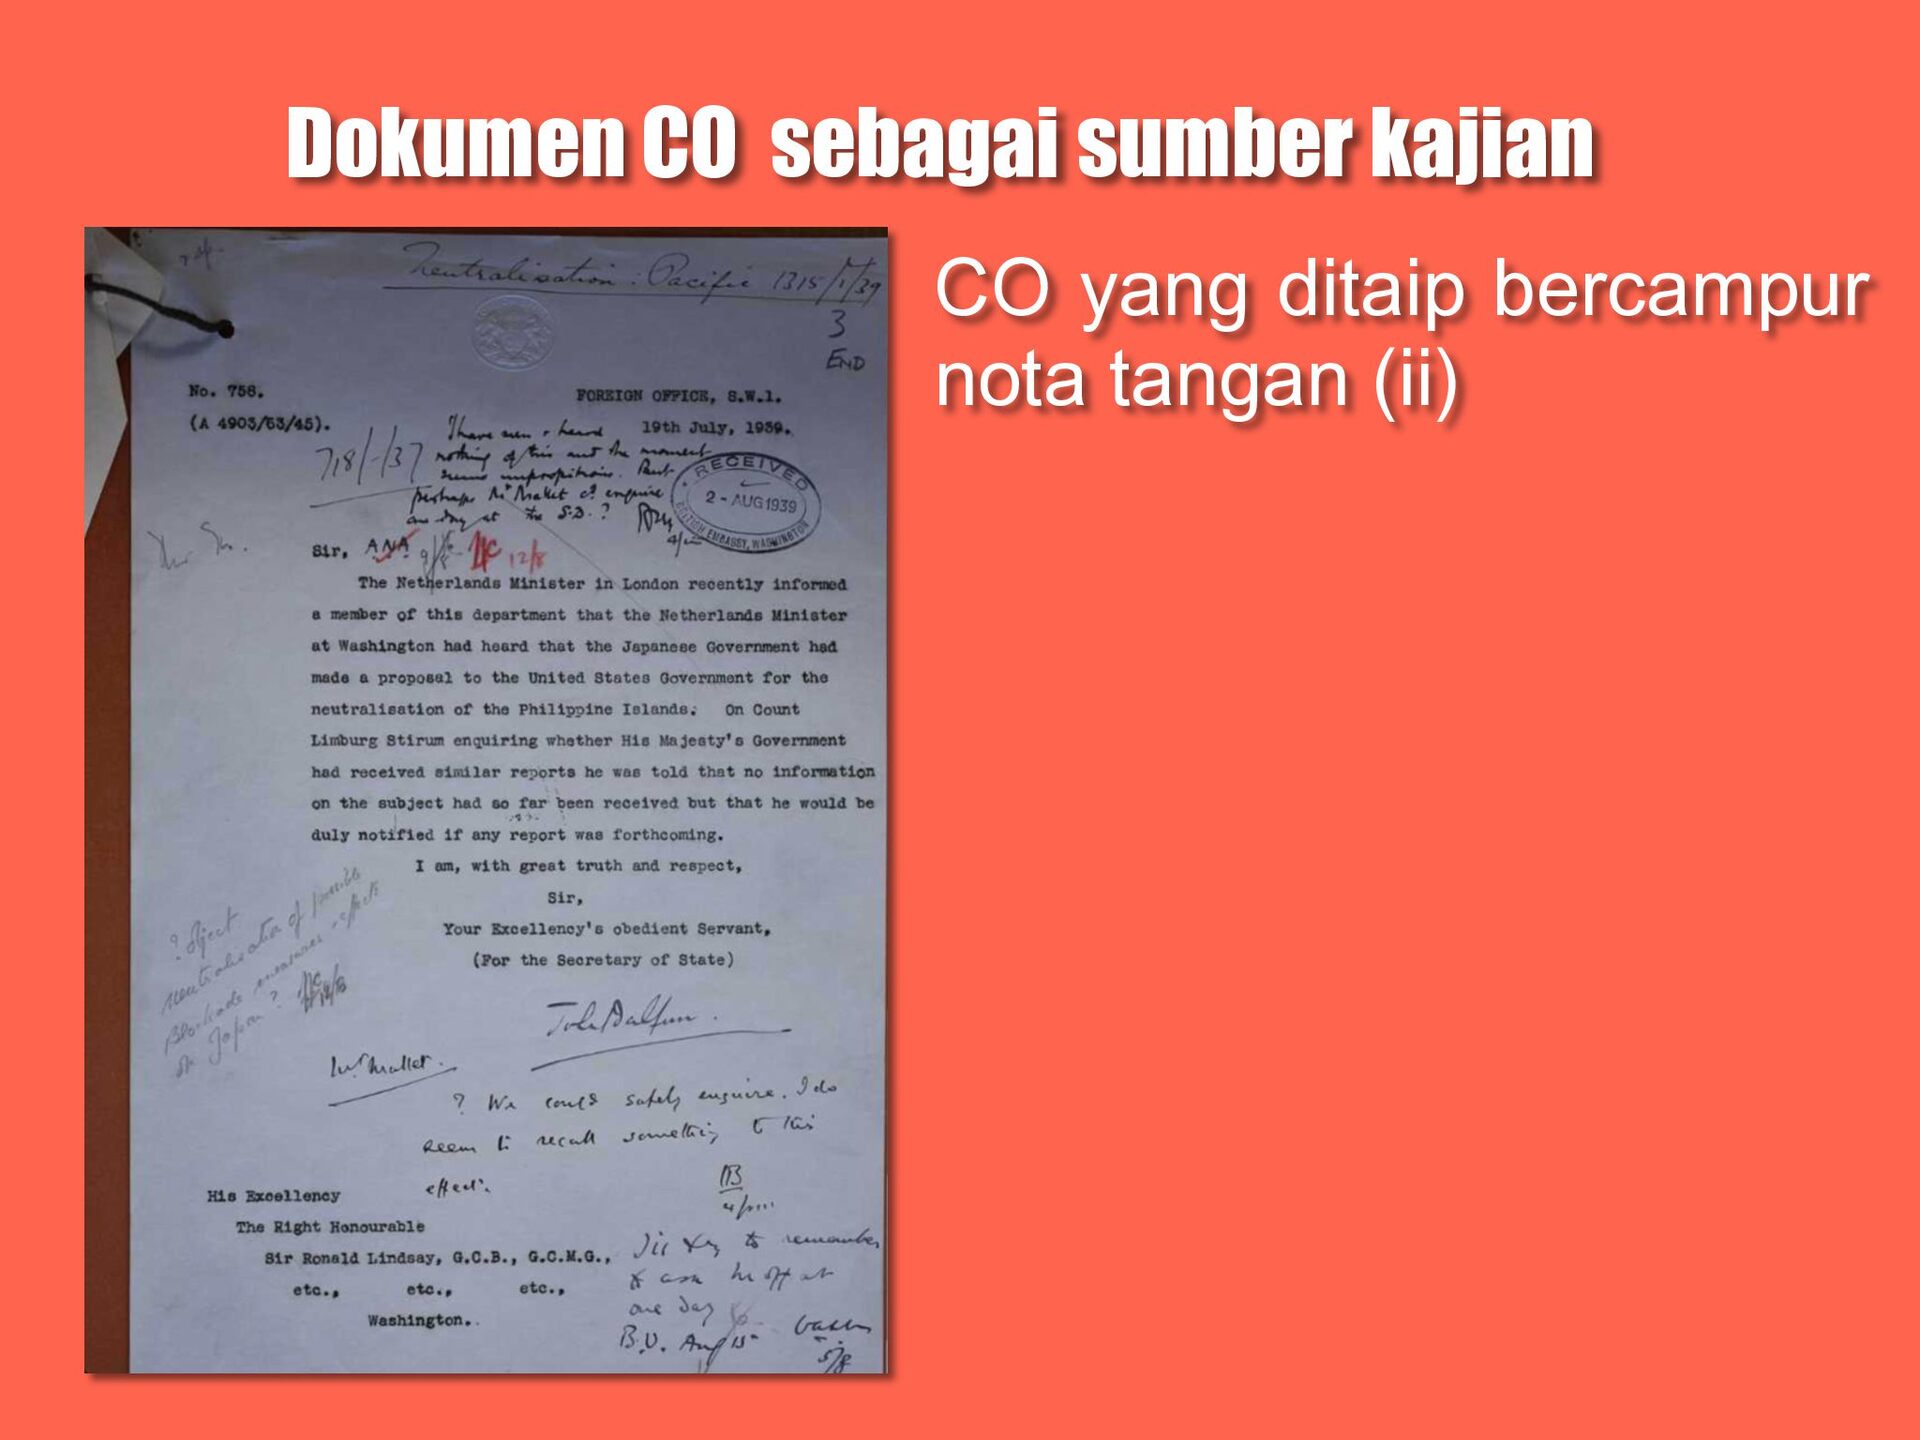 Dokumen CO sebagai sumber kajian
CO yang ditaip bercampur
nota tangan (ii)
Neutralisation: Pacific 1315/1/39
3
END
No. 758.
FOREIGN OFFICE, S.W.1.
(A 4903/63/45).
19th July, 1939.
718/-/37
I have seen & heard
nothing of this and the moment
seems unpropitious. But
perhaps Mr Mallet cd enquire
one day at the S.D.?
RECEIVED
2 - AUG 1939
BRITISH EMBASSY, WASHINGTON
Sir,
ANA
12/8
The Netherlands Minister in London recently informed
a member of this department that the Netherlands Minister
at Washington had heard that the Japanese Government had
made a proposal to the United States Government for the
neutralisation of the Philippine Islands. On Count
Limburg Stirum enquiring whether His Majesty's Government
had received similar reports he was told that no information
on the subject had so far been received but that he would be
duly notified if any report was forthcoming.
I am, with great truth and respect,
Sir,
Your Excellency's obedient Servant,
(For the Secretary of State)
? Object
neutralisation of possible
blockade measures
on Japan?
Mr Mallet.
? We could safely enquire. I do
seem to recall something to this
effect.
His Excellency
The Right Honourable
Sir Ronald Lindsay, G.C.B., G.C.M.G.,
etc., etc., etc.,
Washington.
to remember
one day
B.U. Aug 15
5/8